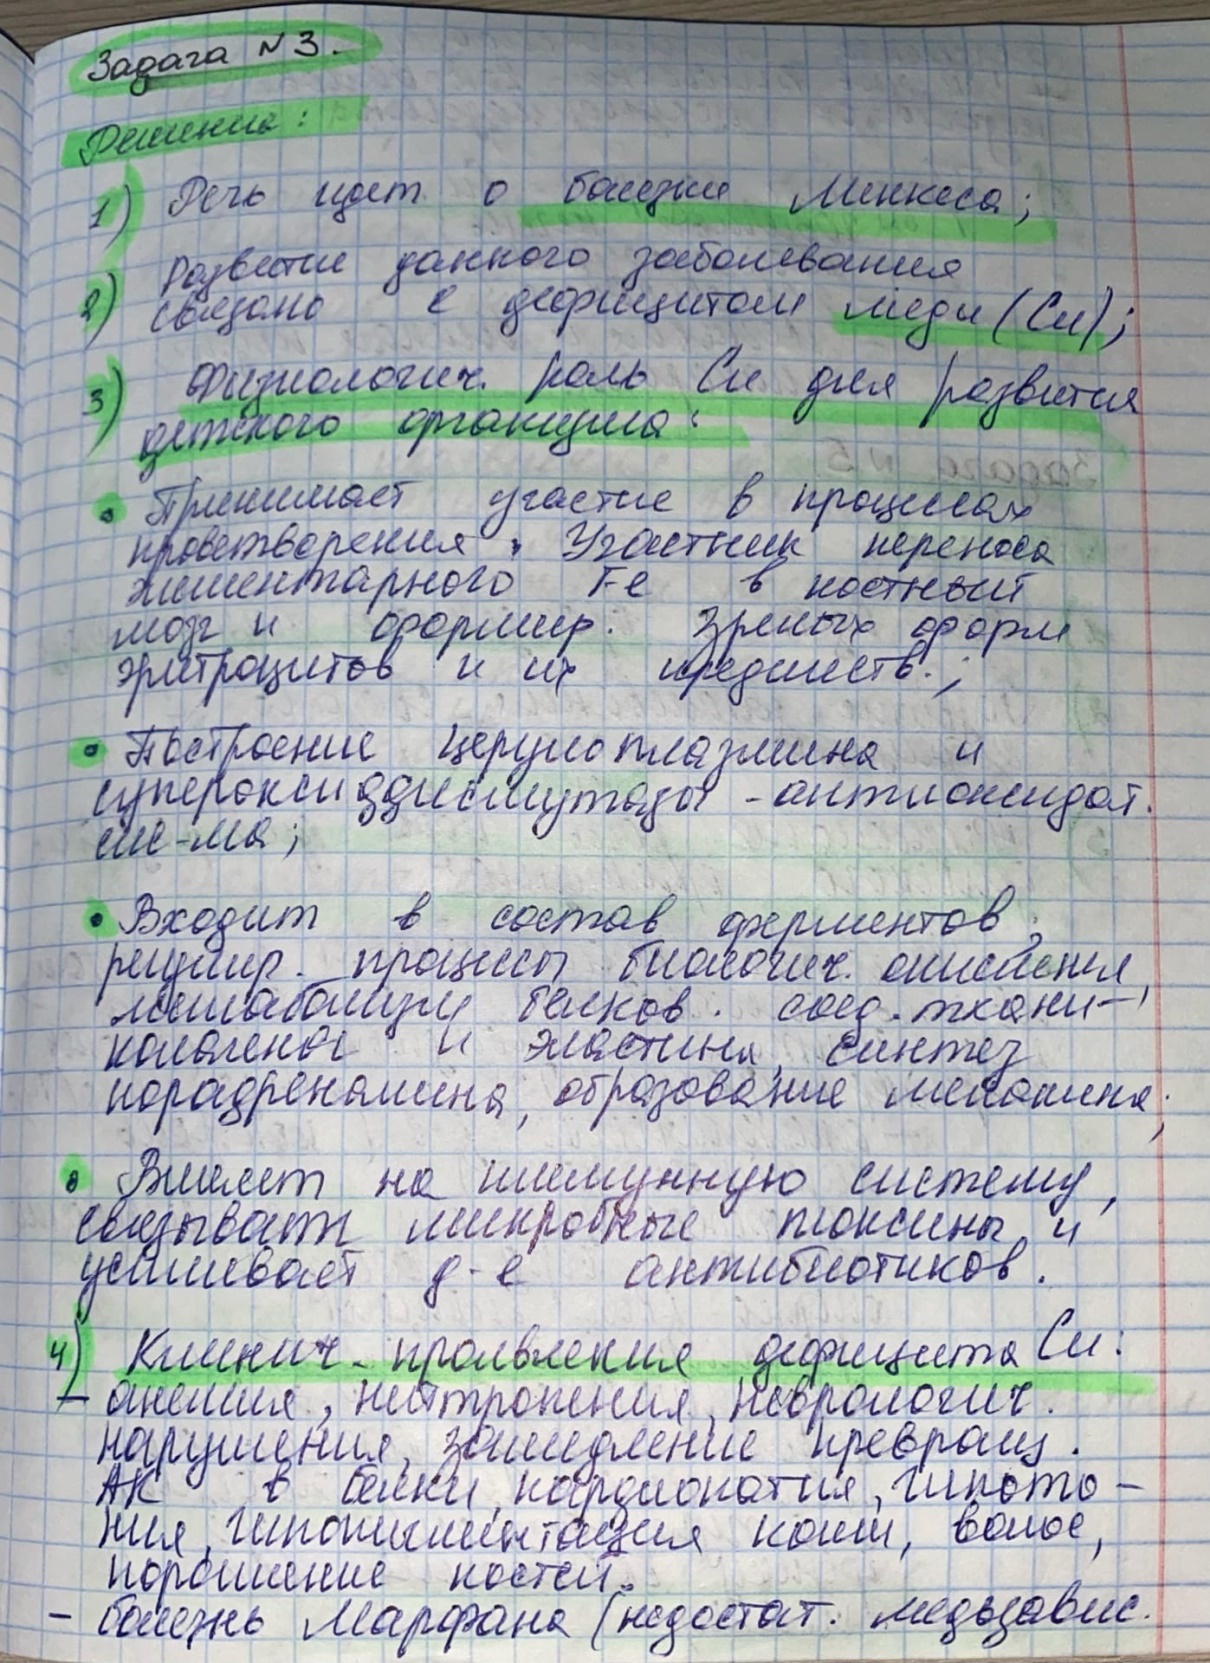 Задача №3.
Решение:
1) Речь идет о болезни Менкеса;
Развитие данного заболевания
2) связано с дефицитом меди (Cu);
3) Физиологич. роль Cu для развития
детского организма:
• Принимает участие в процессах
кроветворения. Участник переноса
элементарного Fe в костный
мозг и формир. зрелых форм
эритроцитов и их предшеств.;
• Построение церулоплазмина и
супероксиддисмутазы - антиоксидат.
сис-ма;
• Входит в состав ферментов,
регулир. процессы биологич. окисления,
метаболизм белков. соед. ткани-
коллагена и эластина, синтез
норадреналина, образование меланина;
• Влияет на иммунную систему,
связывает микробные токсины и
усиливает д-е антибиотиков.
4) Клинич. проявления дефицита Cu:
- анемия, нейтропения, неврологич.
нарушения, замедление превращ.
АК в белки, кардиопатия, гипото-
ния, гипопигментация кожи, волос,
поражение костей.
- болезнь Марфана (недостат. медьзавис.